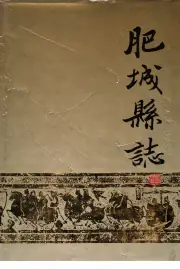 肥城縣誌